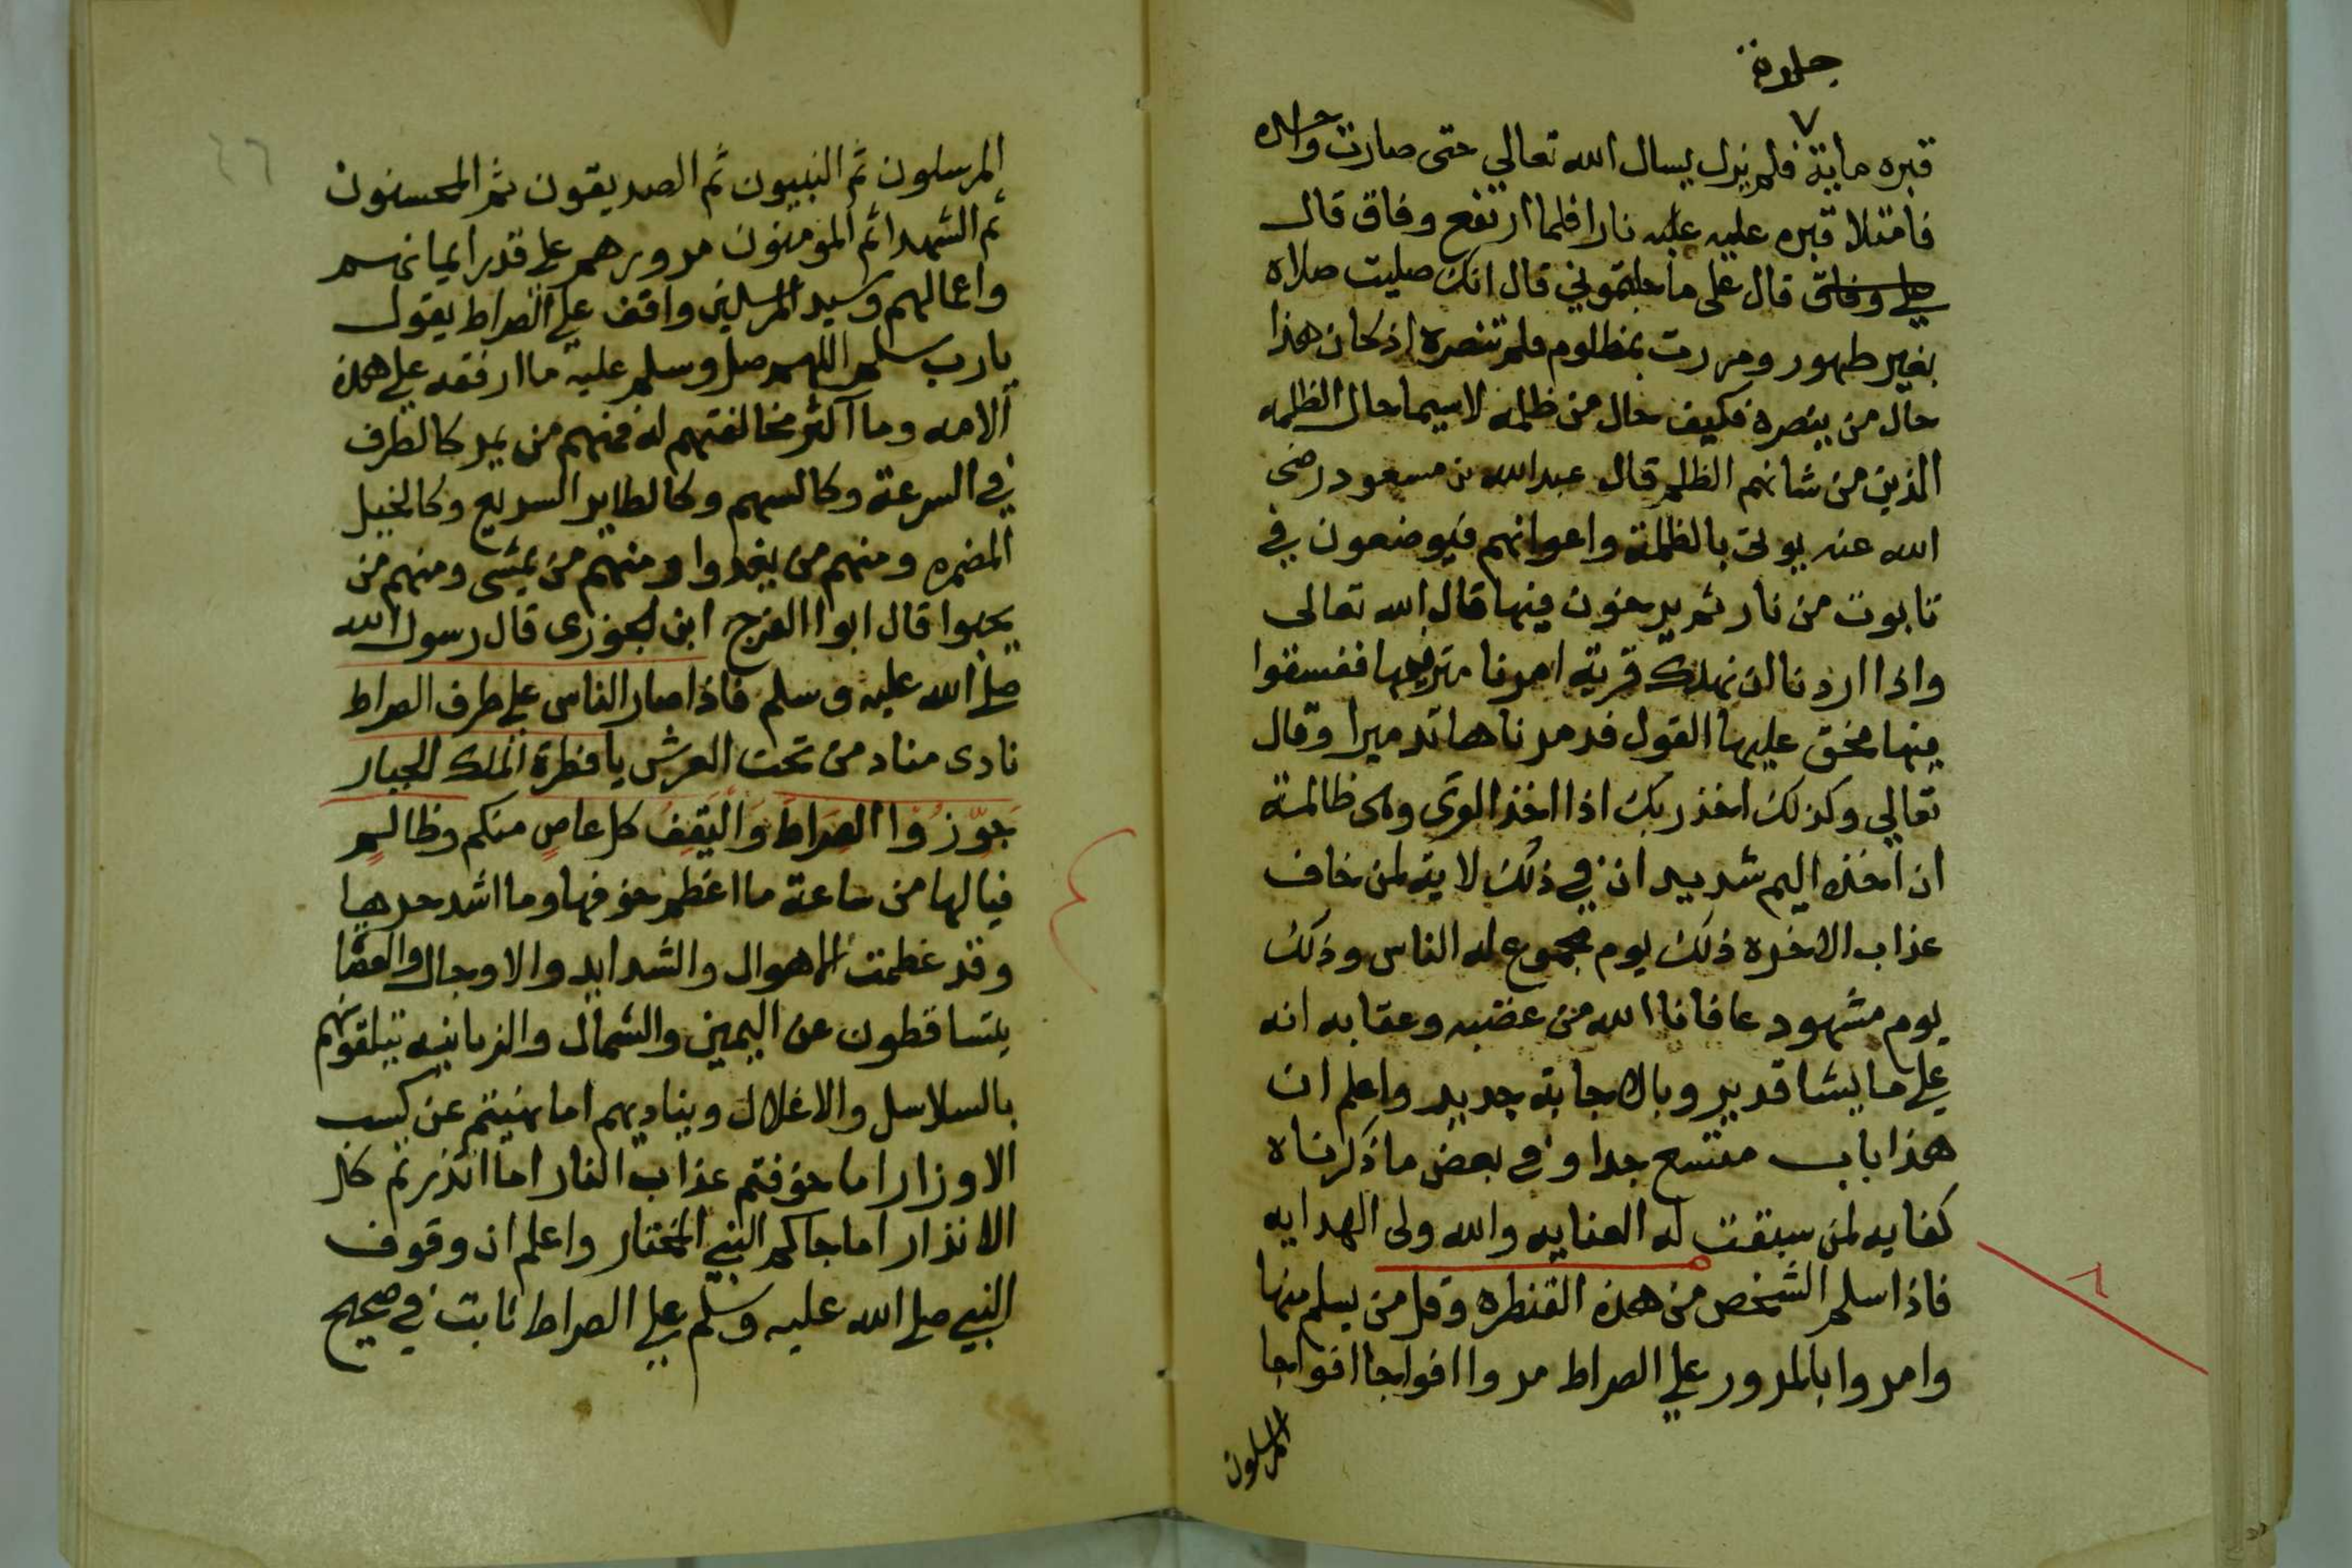 جلدة
قبره ماية فلم يزل يسال الله تعالي حتى صارت واحده
فامتلا قبره عليه عليه نارا فلما ارتفع وفاق قال
قال على ما جلدتموني قال انك صليت صلاه
بغير طهور ومررت بمظلوم فلم تنصره اذ كان هذا
حال من ينصره فكيف حال من ظلمه لاسيما حال الظلمه
الذين من شانهم الظلم قال عبدالله بن مسعود رضى
الله عنه يوتى بالظلمة واعوانهم فيوضعون في
تابوت من نار ثم يرخون فيها قال الله تعالى
واذا اردنا ان نهلك قرية امرنا مترفيها ففسقوا
فيها فحق عليها القول فدمرناها تدميرا وقال
تعالي وكذلك اخذ ربك اذا اخذ القرى وهى ظالمة
ان اخذه اليم شديد ان في ذلك لاية لمن خاف
عذاب الاخره ذلك يوم مجموع له الناس وذلك
يوم مشهود عافانا الله من غضبه وعقابه انه
علي ما يشا قدير وبالاجابة جدير واعلم ان
هذا باب متسع جدا وفي بعض ما ذكرناه
كفايه لمن سبقت له العنايه والله ولى الهدايه
فاذا سلم الشخص من هذه القنطره وقل من يسلم منها
وامروا بالمرور علي الصراط مروا افواجا افواجا
المرسلون
٨
٤٦
المرسلون ثم النبيون ثم الصديقون ثم المحسنون
ثم الشهدا ثم المومنون مرورهم علي قدر ايمانهم
واعمالهم وسيد المرسلين واقف علي الصراط يقول
يارب سلم اللهم صل وسلم عليه ما ارفقه علي هذه
الامه وما اكثر مخالفتهم له فمنهم من يمر كالطرف
في السرعة وكالسهم وكالطاير السريع وكالخيل
المضمره ومنهم من يغدوا ومنهم من يمشى ومنهم من
يحبوا قال ابوا الفرج ابن الجوزى قال رسول الله
صلى الله عليه وسلم فاذا صار الناس علي طرف الصراط
نادى مناد من تحت العرش يا فطرة الملك الجبار
جوّزوا الصراط واليقف كل عاص منكم وظالم
فيالها من ساعة ما اعظم خوفها وما اشد حرها
وقد عظمت الاهوال والشدايد والاوجال والعصا
يتساقطون عن اليمين والشمال والزبانيه تتلقونهم
بالسلاسل والاغلال ويناديهم اما نهيتم عن كسب
الاوزار اما خوفتم عذاب النار اما انذرتم كل
الانذار اما جاكم النبي المختار واعلم ان وقوف
النبي صلى الله عليه وسلم علي الصراط ثابت في صحيح